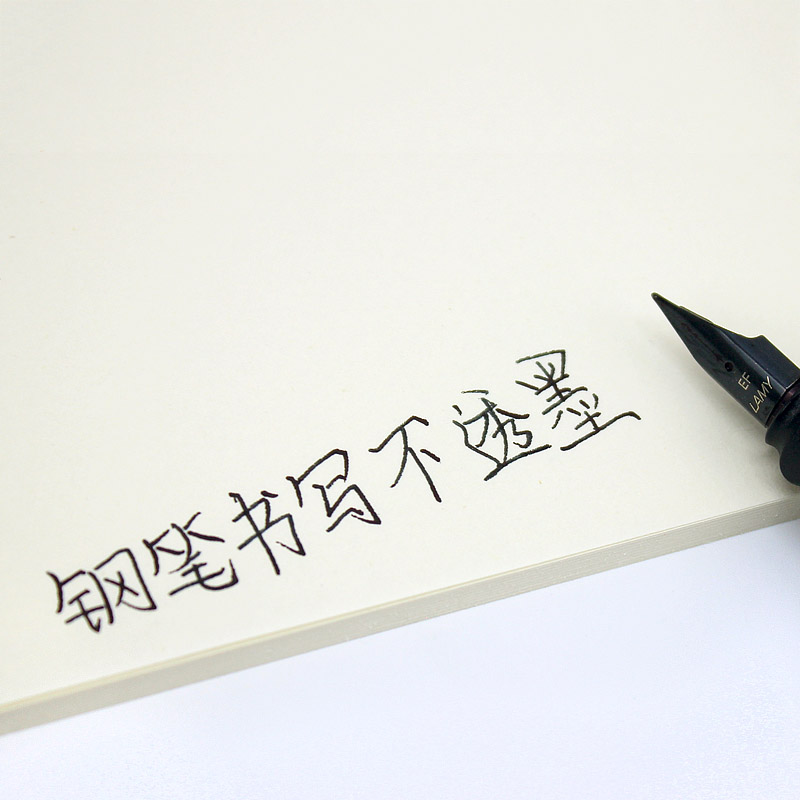 钢笔书写不透墨
EF
LAMY